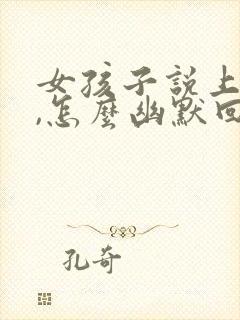 女孩子説上
,怎麼幽默回
孔奇